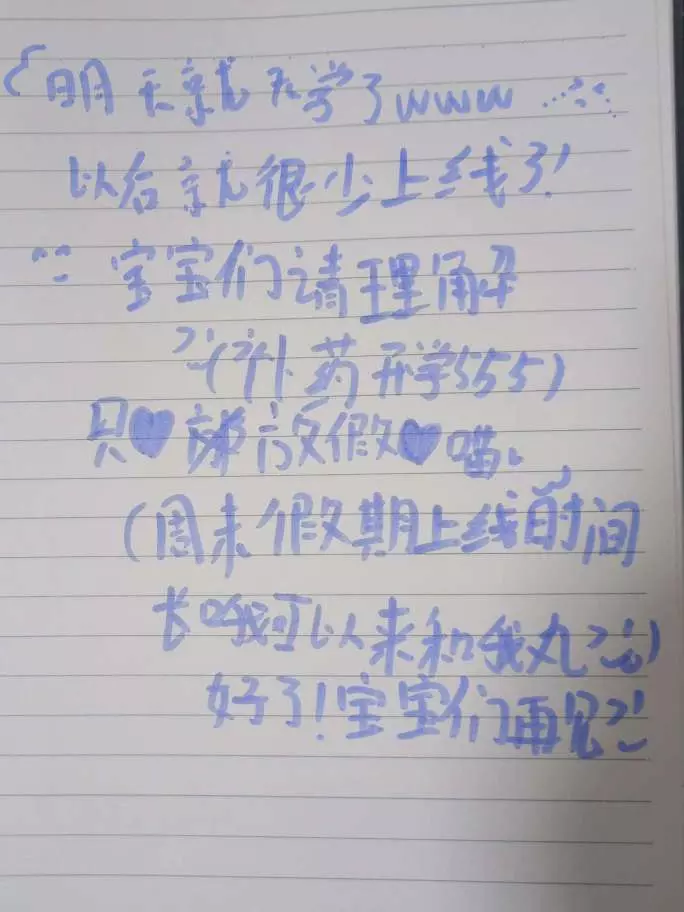 明天就开学了www
以后就很少上线了！
宝宝们请理解
(补药开学555)
只♥ 放假♥喵。
(周末假期上线时间
长哦可以来和我丸)
好了！宝宝们再见